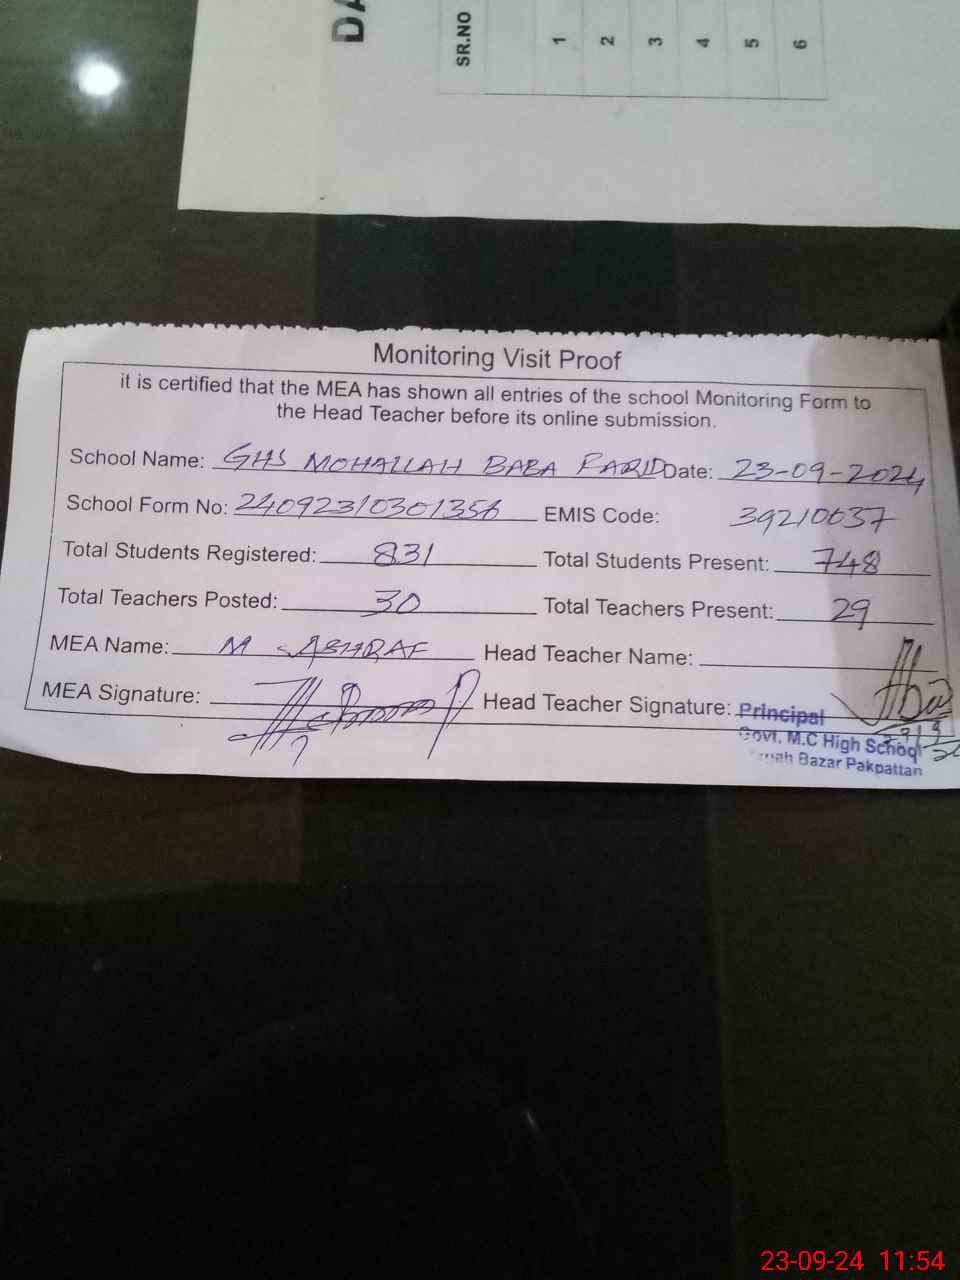 DA
SR.NO
1
2
3
4
5
6
Monitoring Visit Proof
it is certified that the MEA has shown all entries of the school Monitoring Form to
the Head Teacher before its online submission.
School Name: GHS MOHALLAH BABA FARID Date: 23-09-2024
School Form No: 24092310301356 EMIS Code: 39210037
Total Students Registered: 831 Total Students Present: 748
Total Teachers Posted: 30 Total Teachers Present: 29
MEA Name: M ASHRAF Head Teacher Name:
MEA Signature: Head Teacher Signature: Principal
Govt. M.C High School
Bazar Pakpattan
23-09-24 11:54